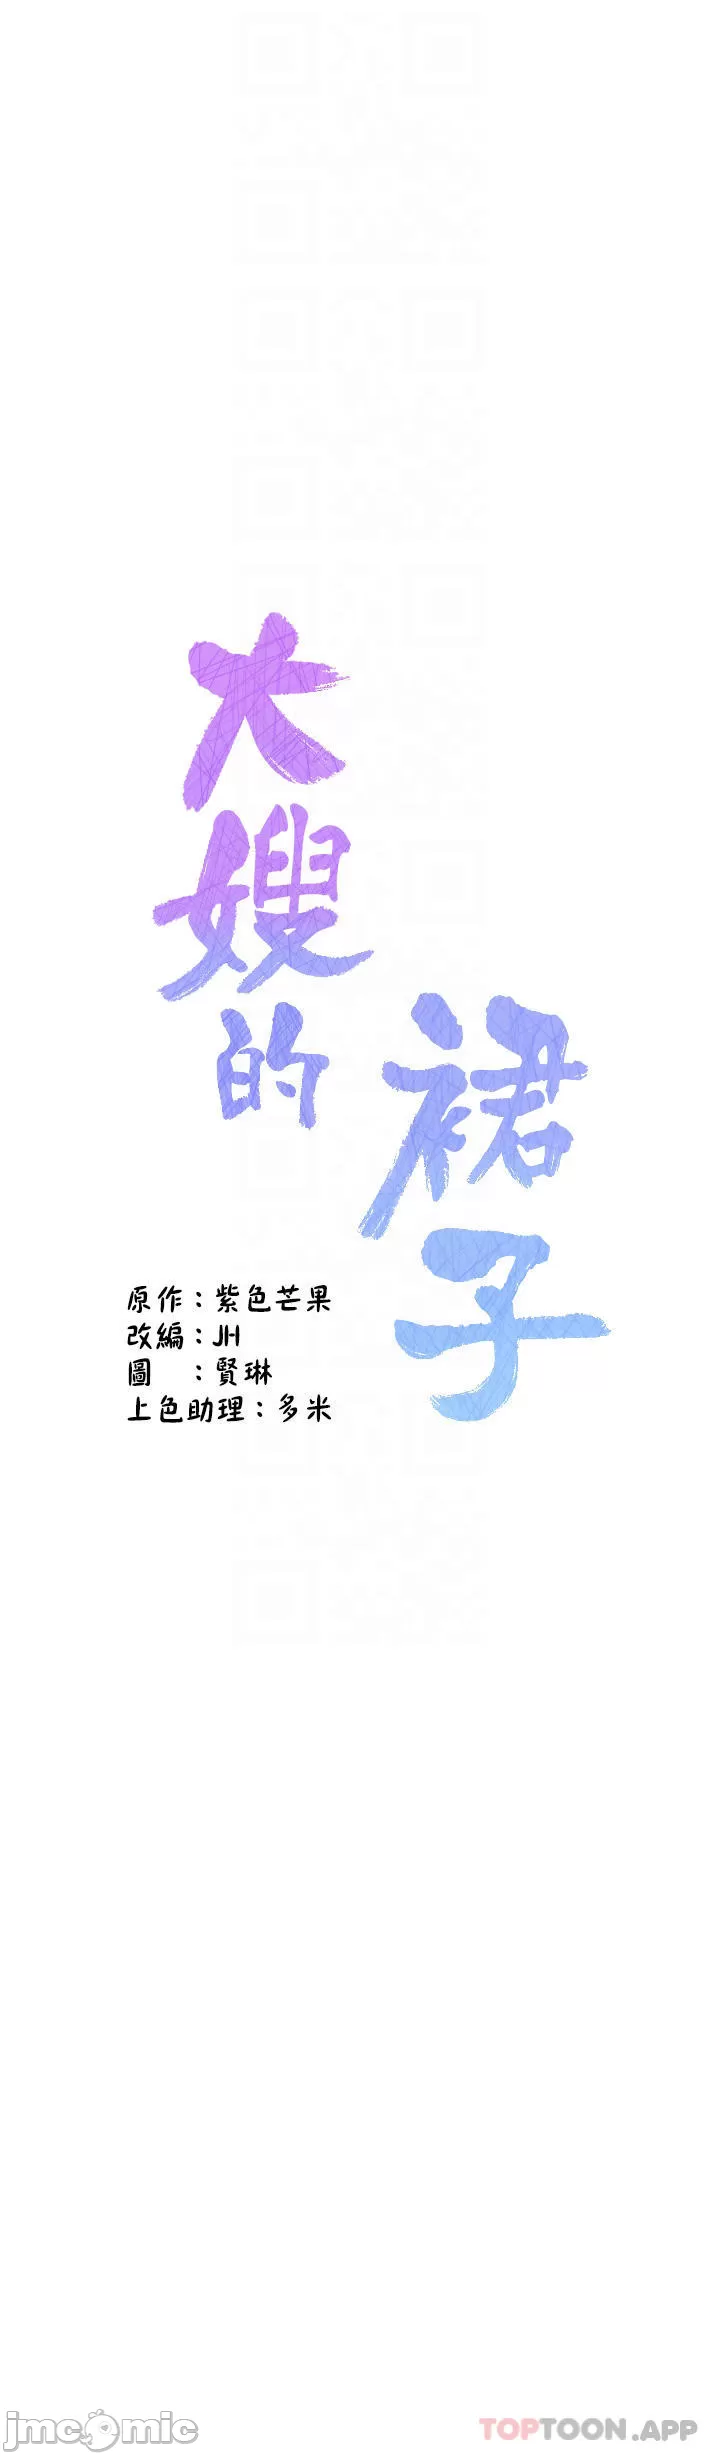 大嫂的
裙子
原作：紫色芒果
改編：JH
圖　：賢琳
上色助理：多米
jmcomic
TOPTOON.APP